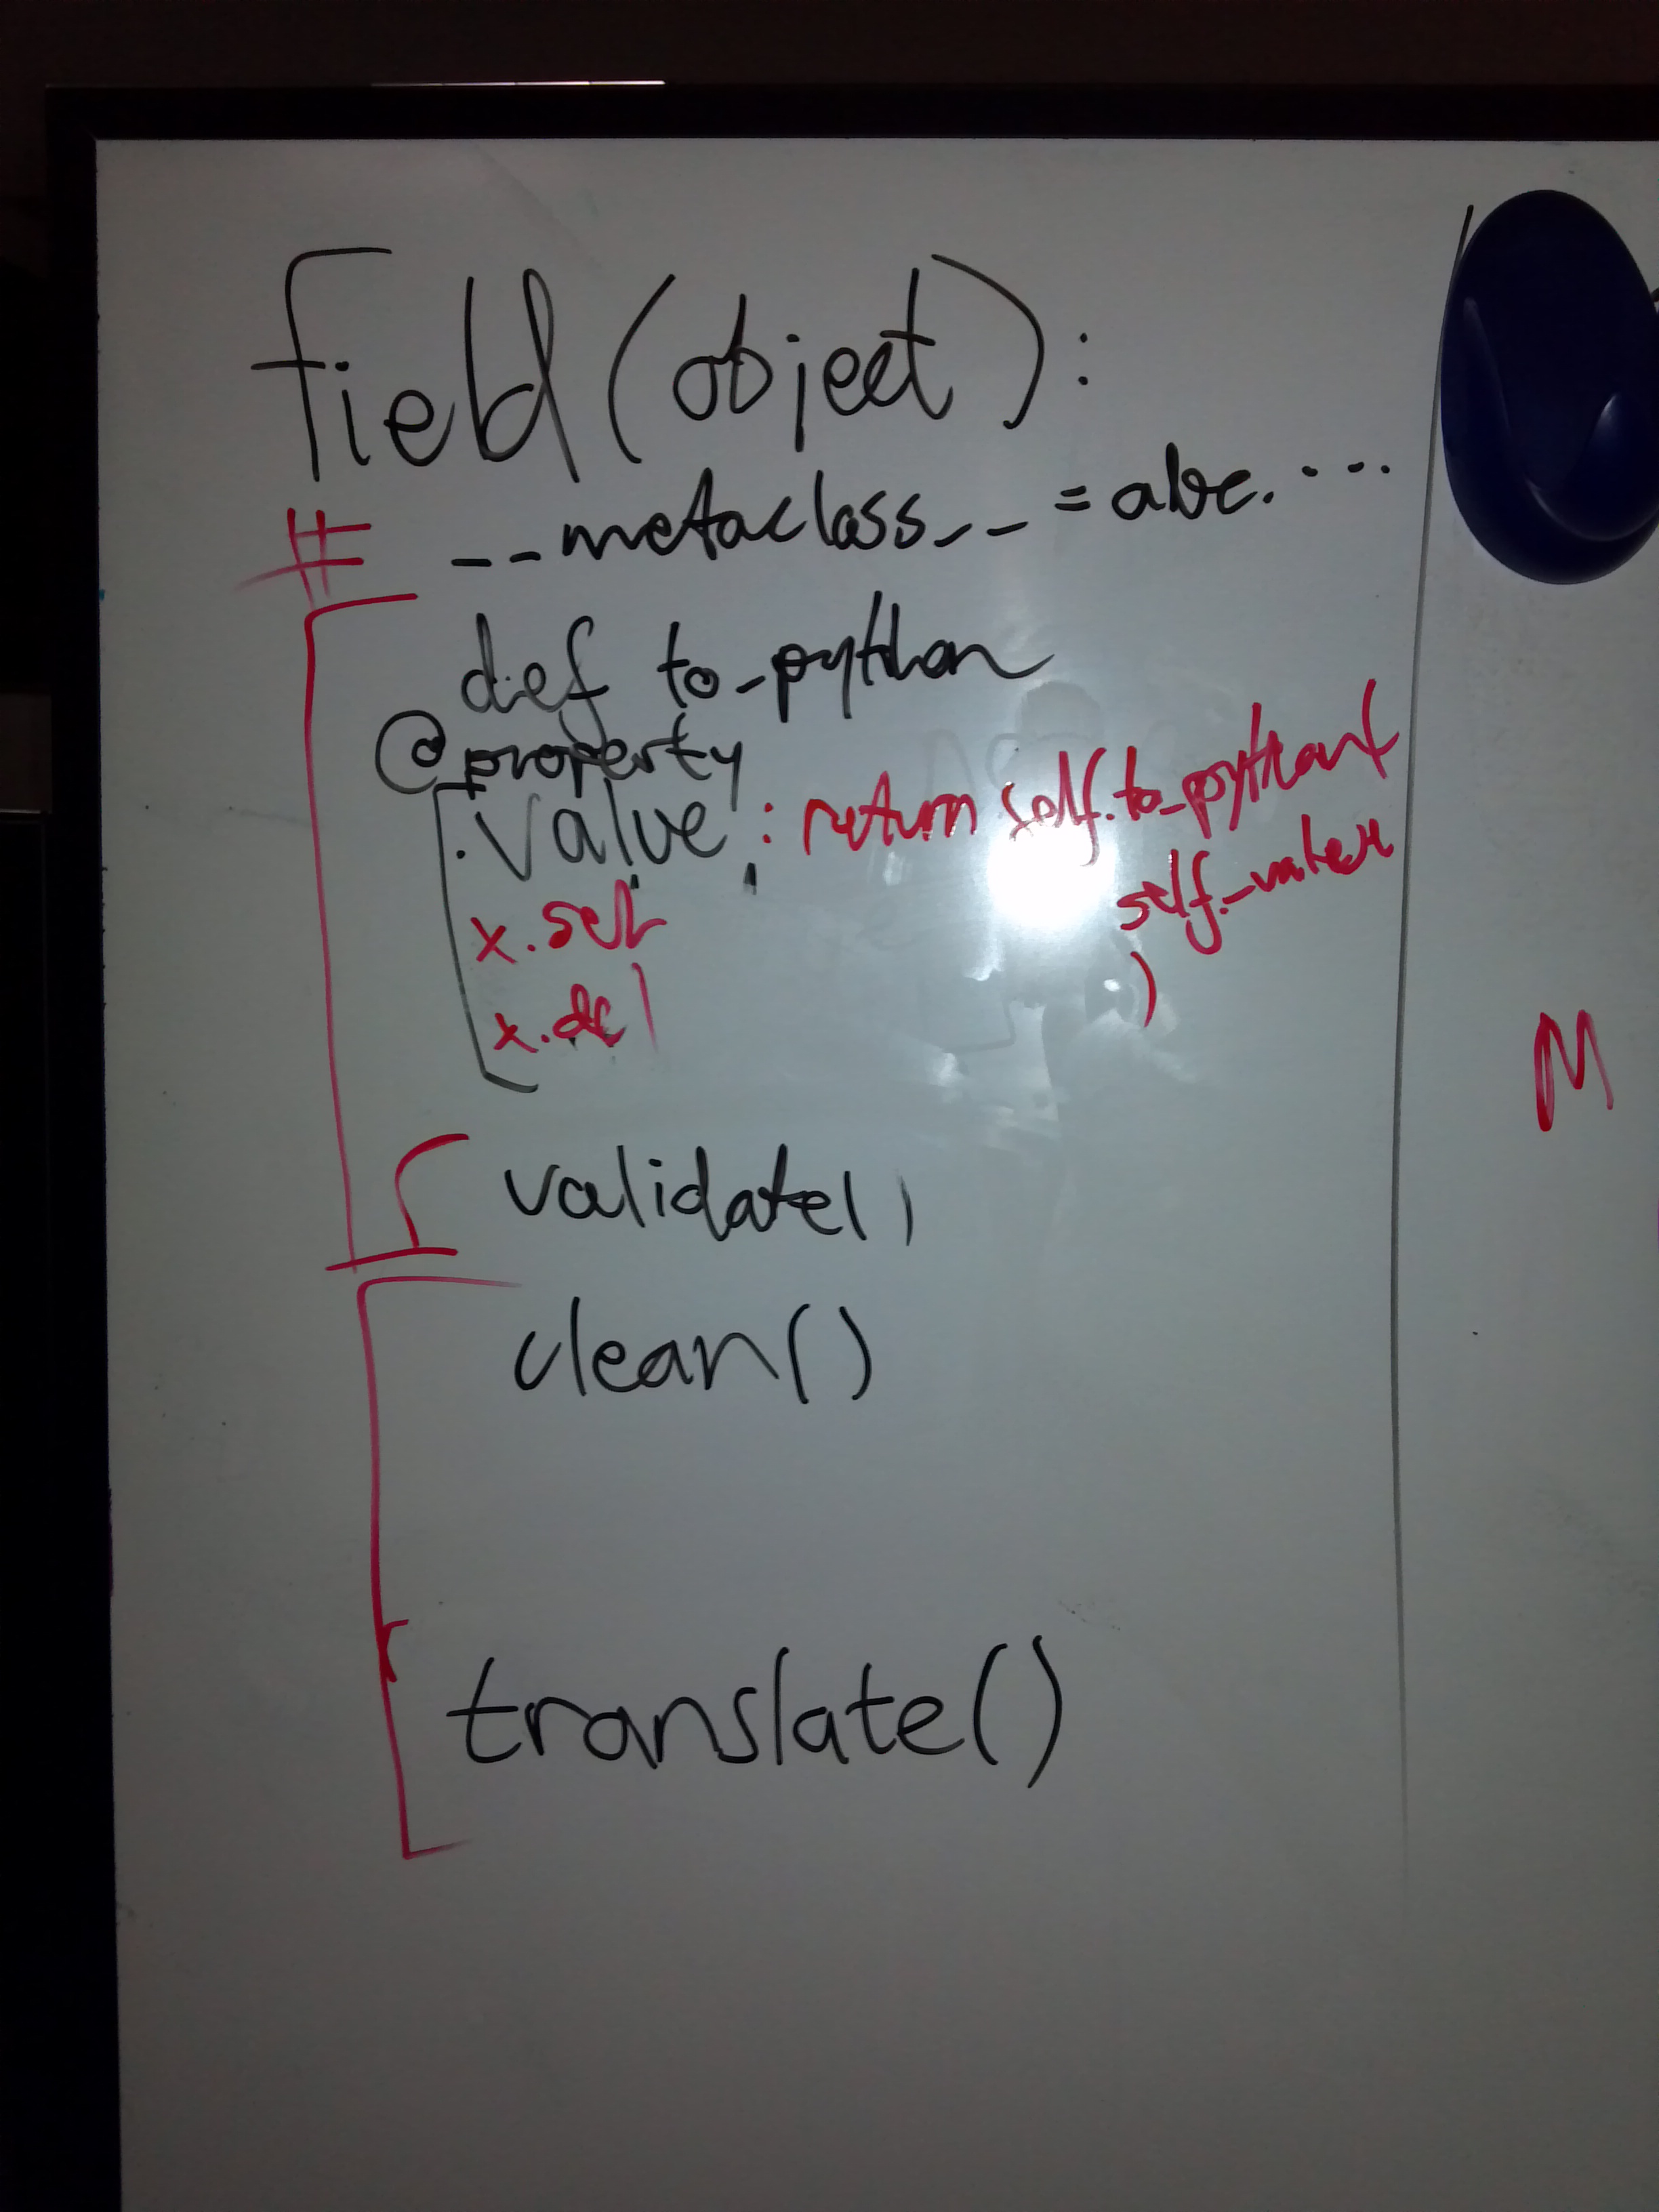 Field(object):
# __metaclass__ = abc. ...
def to_python
@property
.value : return self.to_python(
self._value
x.set
)
x.del
M
validate()
clean()
translate()